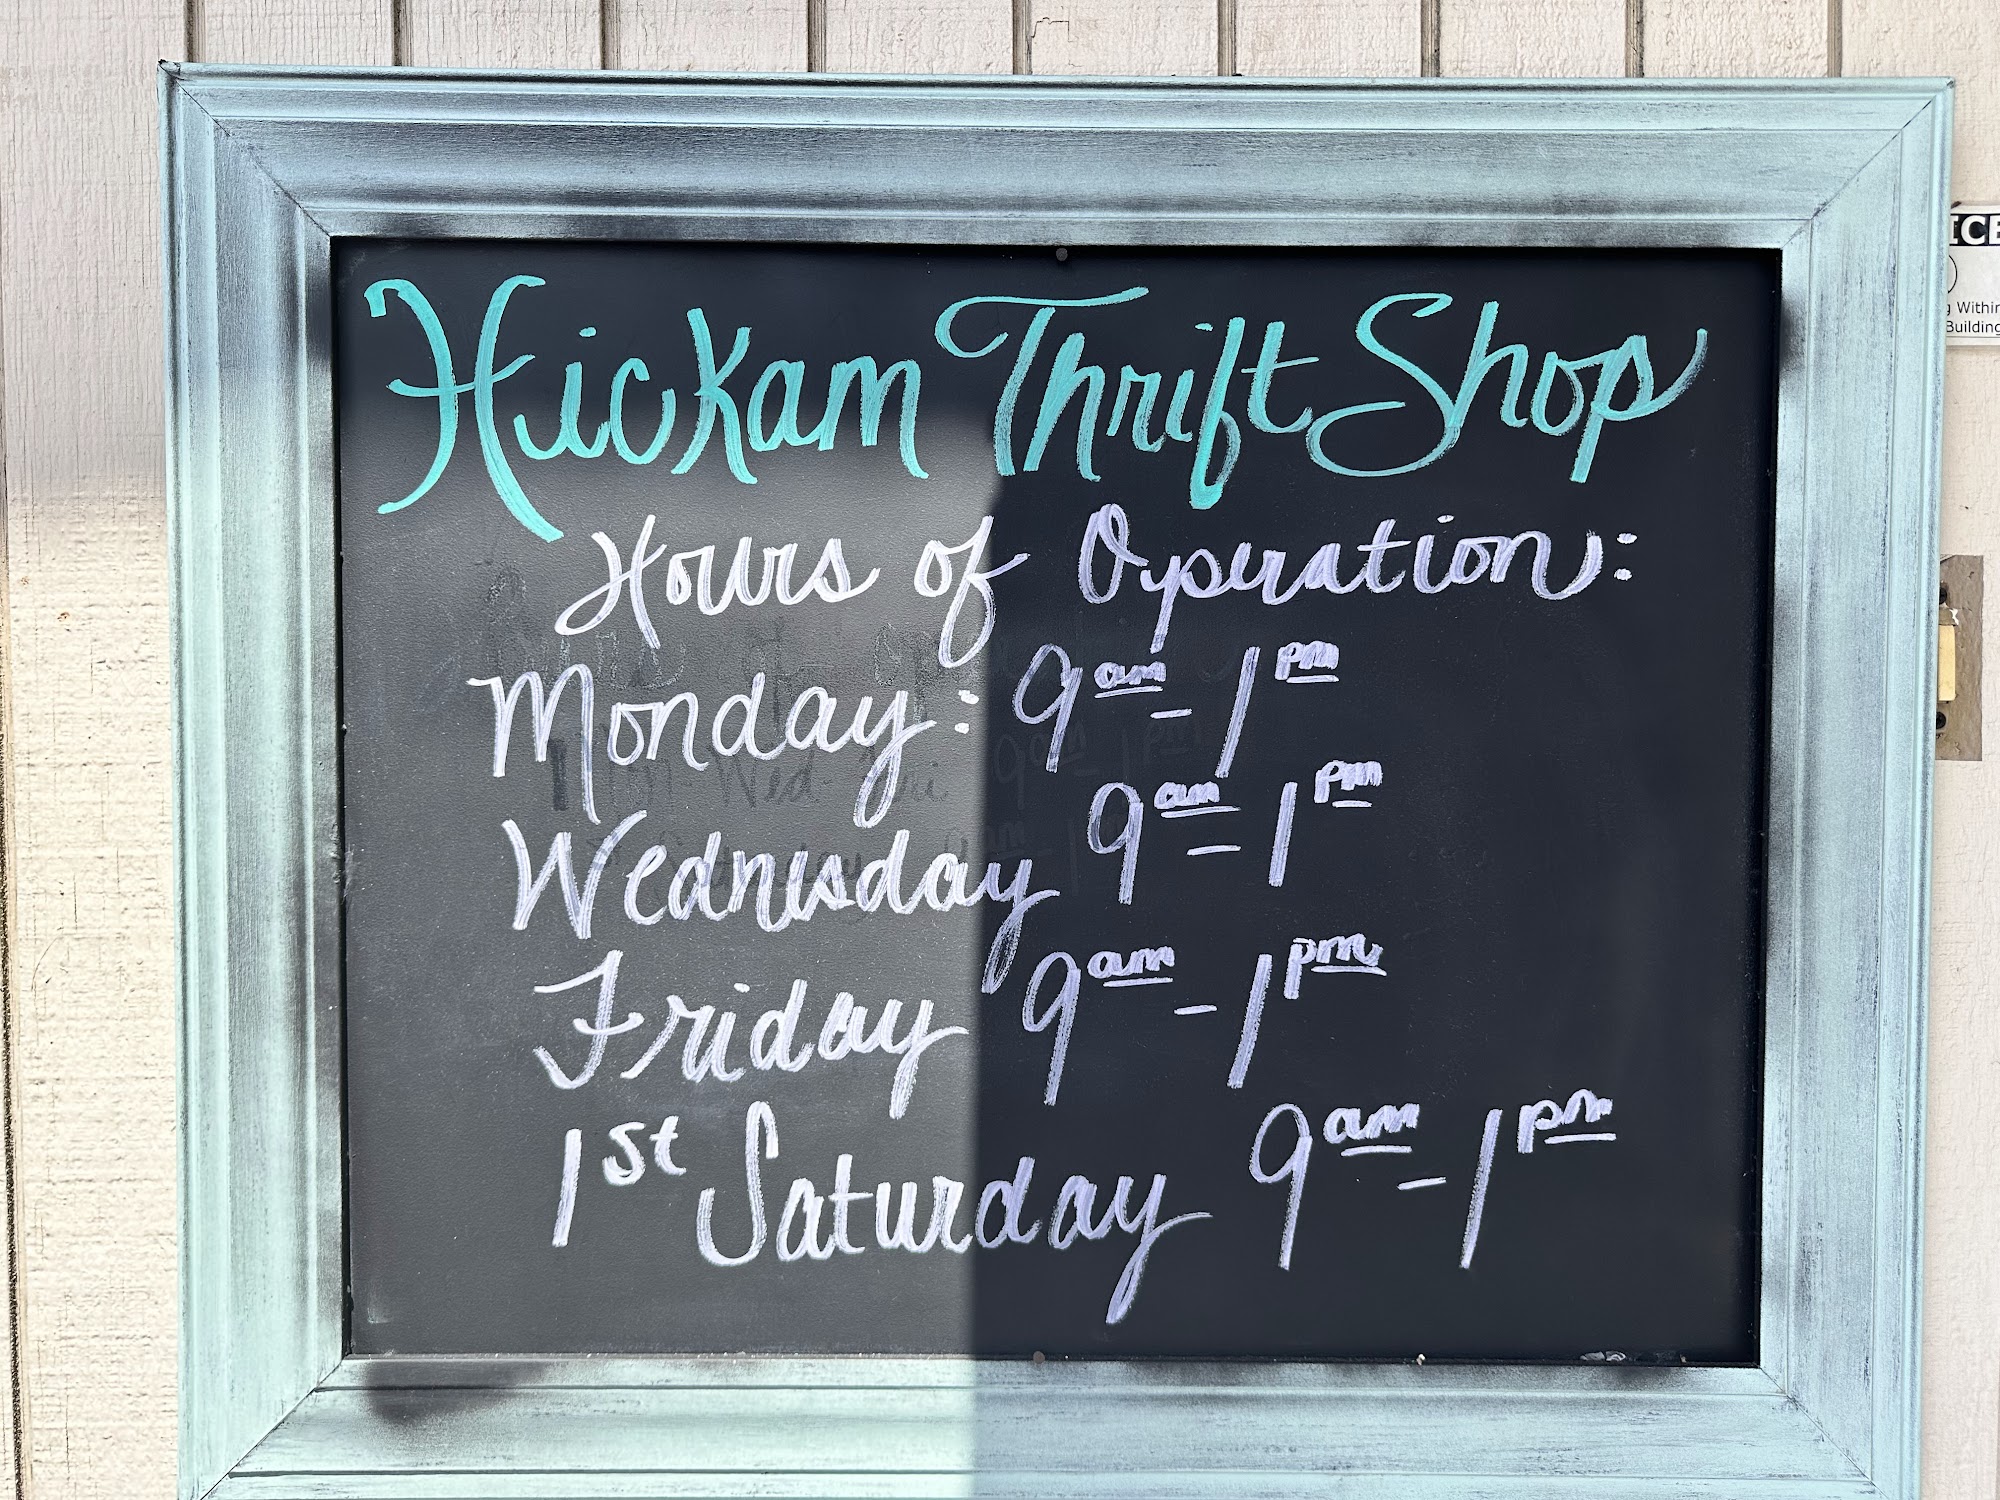 Hickam Thrift Shop
Hours of Operation:
Monday: 9am - 1pm
Wednesday 9am - 1pm
Friday 9am - 1pm
1st Saturday 9am - 1pm
Within
Building